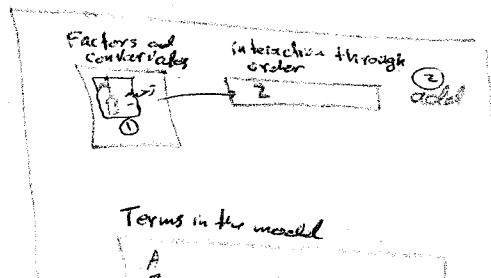 Factors and
covariates
interaction through
order
2
②
add
①
Terms in the model
A